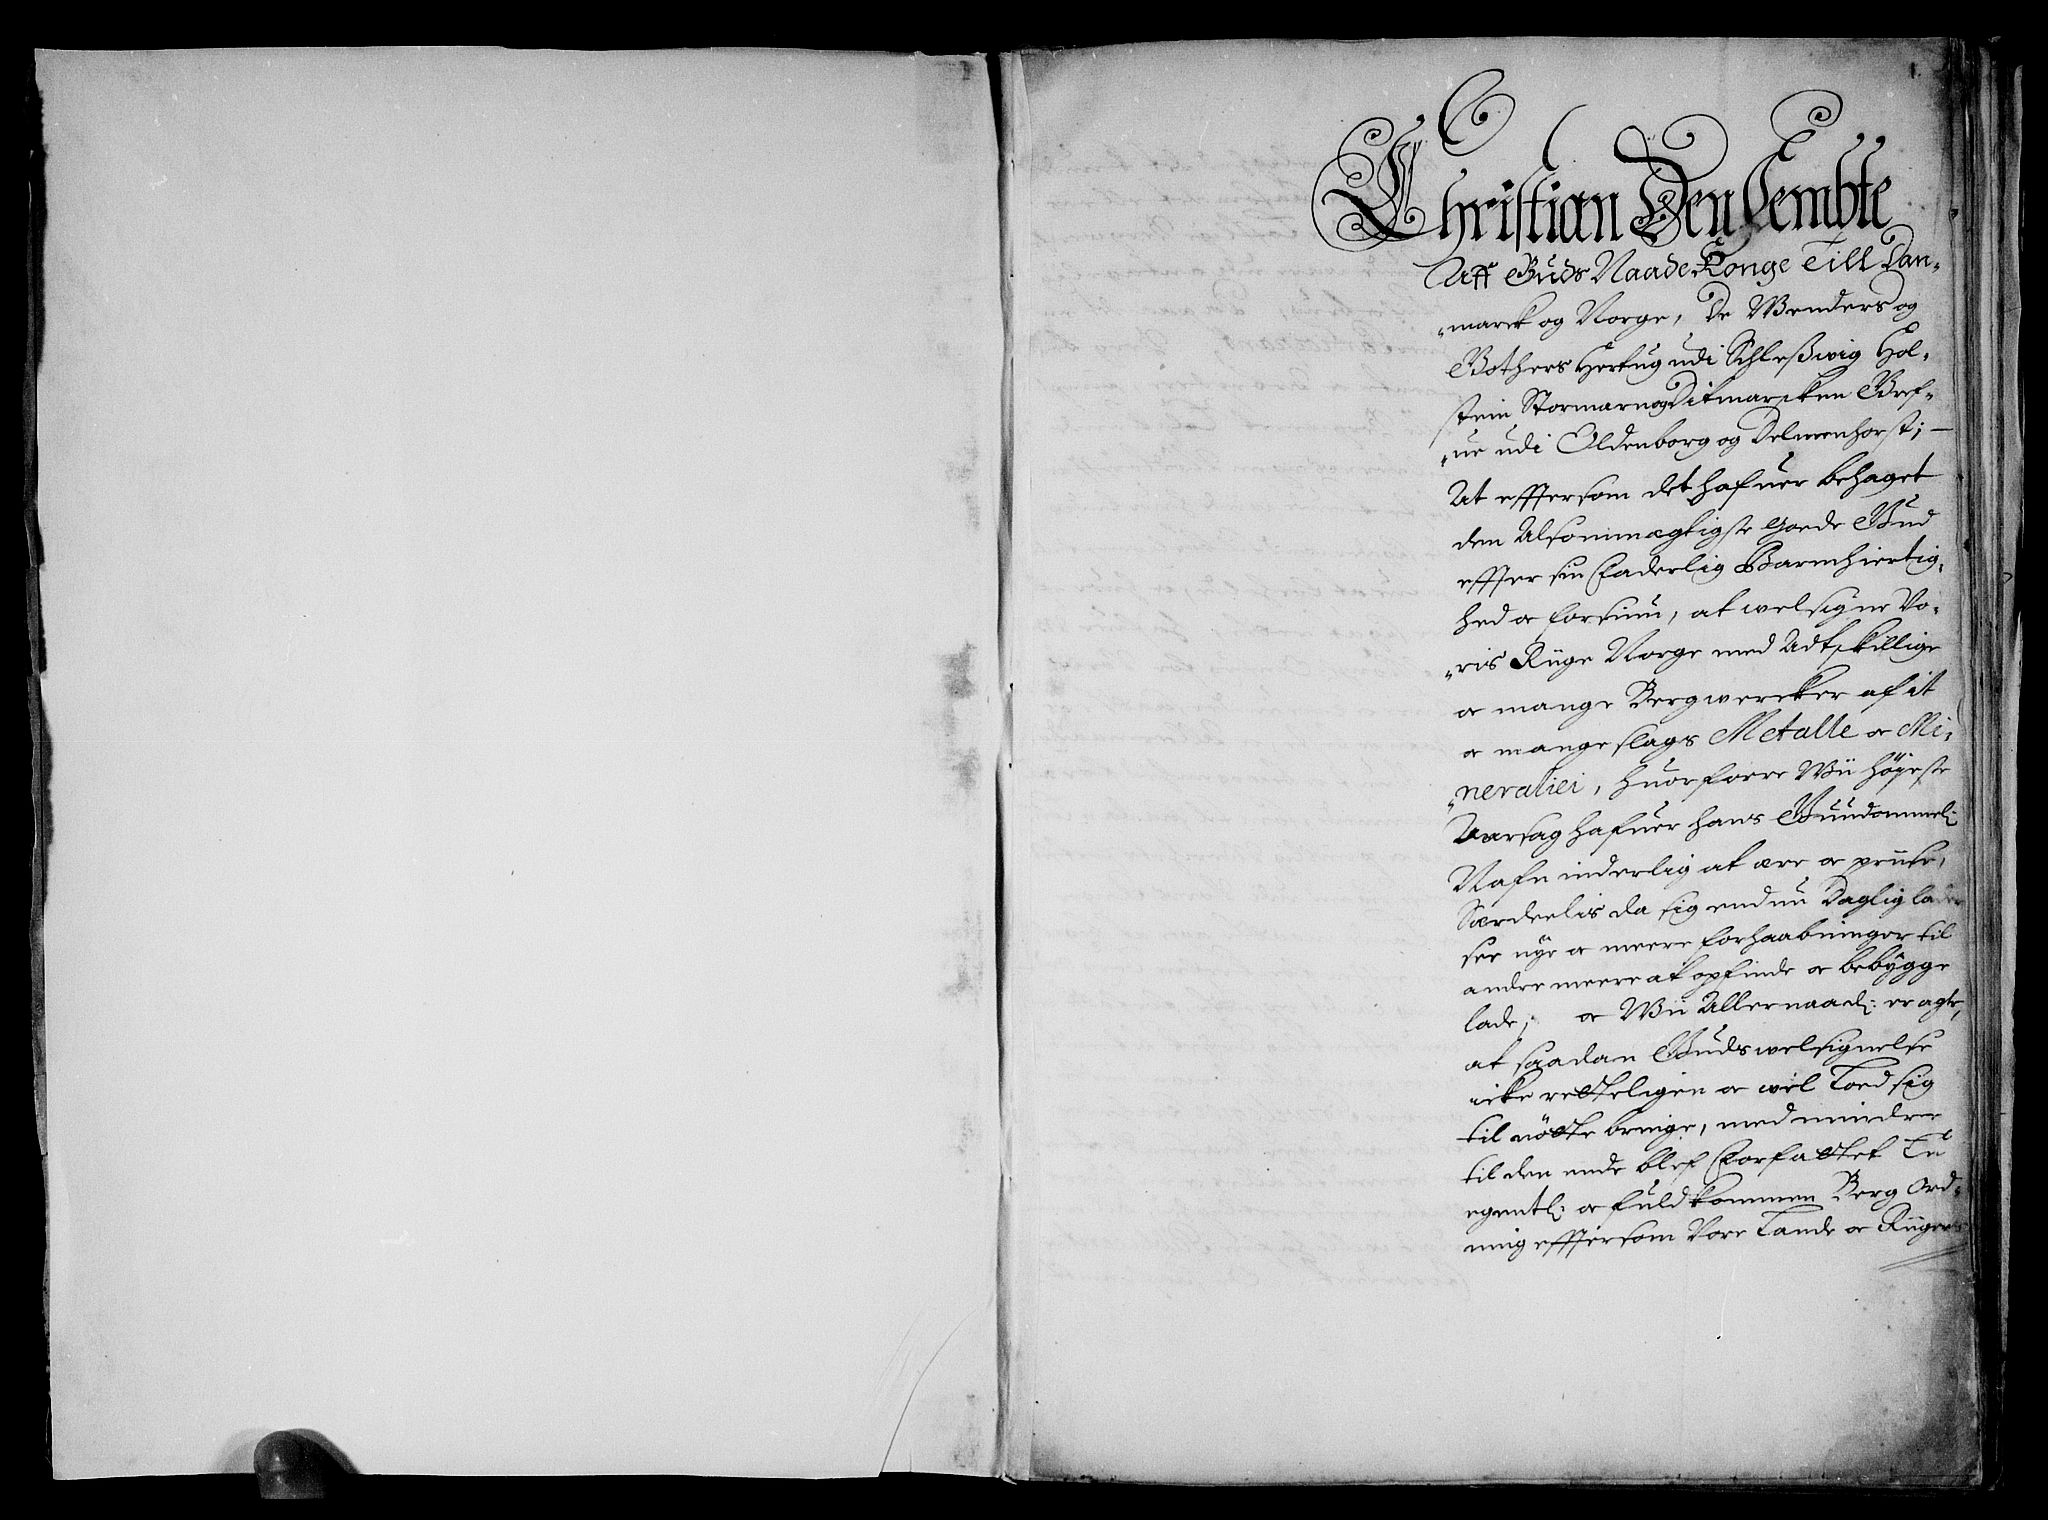 1.
Christian Den Fembte
Aff Guds Naade Konge Till Dan-
marck og Norge, De Wenders og
Gothers Hertug udi Schleßwig Hol-
stein Stormarn og Ditmarcken Gref-
ue udi Oldenborg og Delmenhorst; —
At effter som det hafuer behaget
den Alsommægtigste Goede Gud
effter sin Faderlig Barmhiertig-
hed oc forsiuun, at welsigne Vo-
ris Riige Norge med Adtskillige
oc mange Bergwercker af it
oc mange slags Metalle oc Mi-
neraliei, huorforre Wii høyeste
Aarsag hafuer hans Guudommel:
Nafn inderlig at ære oc priise,
Særdeelis da sig endnu Daglig lader
see nye oc meere forhaabninger til
andre meere at opfinde oc bebygge
lade; oc Wii Allernaad: eragte,
at saadan Guds welsignelse
icke retteligen oc wel Loed sig
til nötte bringe, med mindre
til den ende blef forfattet En
egentl: oc fuldkommen Berg Ord-
ning efftersom Vore Lande oc Riigers